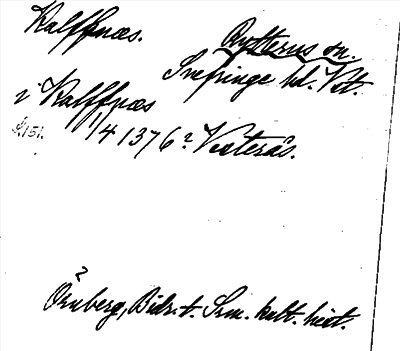 Kalffnæs.
Rytterns sn.
Snefringe hd. Vstl.
i Kalffnæs
14/1 1376 ? Västerås.
?
Örnberg, Bidr. t. Srm. kult. hist.